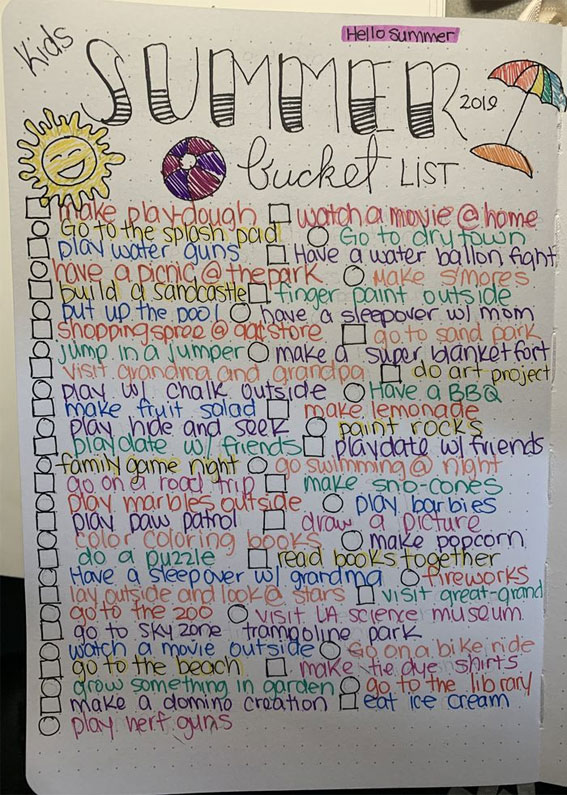 Hello Summer
Kids
SUMMER
2019
bucket LIST
make play-dough watch a movie @ home
Go to the splash pad Go to dry town
play water guns Have a water ballon fight
have a picnic @ the park make s'mores
build a sandcastle finger paint outside
put up the pool have a sleepover w/ mom
shopping spree @ 99¢ store go to sand park
jump in a jumper make a super blanket fort
visit grandma and grandpa do art project
play w/ chalk outside Have a BBQ
make fruit salad make lemonade
play hide and seek paint rocks
playdate w/ friends playdate w/ friends
family game night go swimming @ night
go on a road trip make sno-cones
play marbles outside play barbies
play paw patrol draw a picture
color coloring books make popcorn
do a puzzle read books together
Have a sleepover w/ grandma fireworks
lay outside and look @ stars visit great-grand
go to the zoo visit LA science museum
go to sky zone trampoline park
watch a movie outside Go on a bike ride
go to the beach make tie dye shirts
grow something in garden go to the library
make a domino creation eat ice cream
play nerf guns